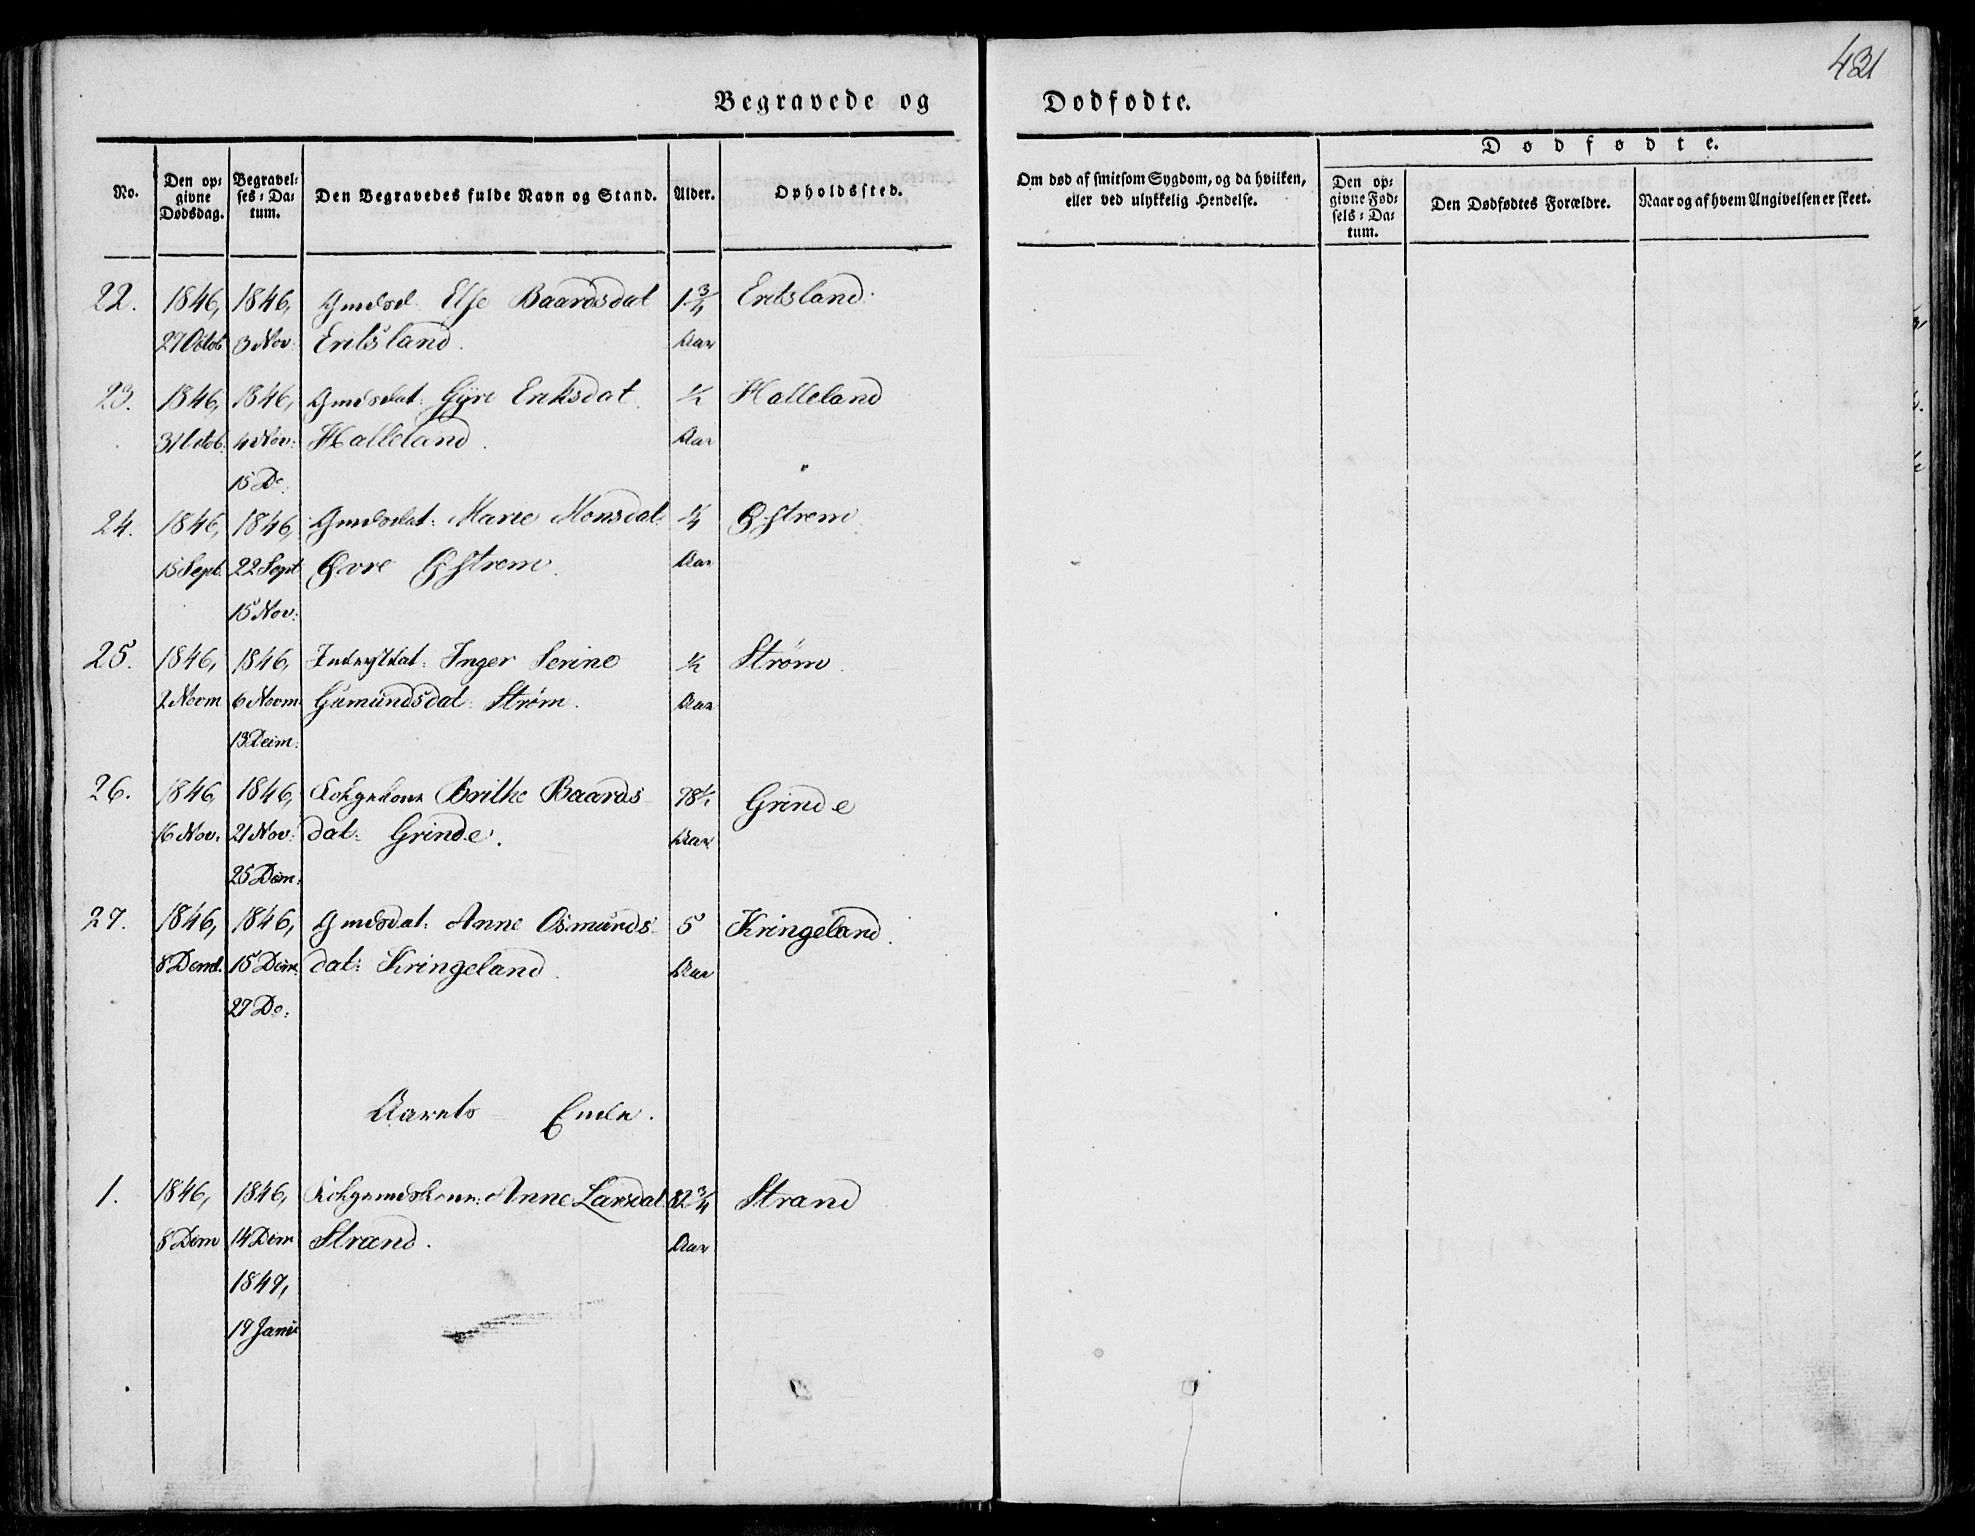 431
Begravede og Dødfødte.
No.
Den op-
givne
Dødsdag.
Begravel-
ses-Da-
tum.
Den Begravedes fulde Navn og Stand.
Alder.
Opholdssted.
Om død af smitsom Sygdom, og da hvilken,
eller ved ulykkelig Hendelse.
Dødfødte.
Den op-
givne Fød-
sels-Da-
tum.
Den Dødfødtes Forældre.
Naar og af hvem Angivelsen er skeet.
22. 1846, 1846, Else Baardsdat 1 3/4
27 Octob 3 Nov: Aar
23. 1846, 1846, Gmdsdat: Gyre Eriksdat. 1/2 Halleland
31 Octob. 4 Nov: Halleland. Aar
15 Do:
24. 1846, 1846, Gmdsdat: Marie Monsdat: Østrem.
15 Sept. 22 Sept Øvre Østrem. Aar
15 Nov:
25. 1846, 1846, Inger Serine 1/2 Strøm.
2 Novm 6 Novm. Gumundsdat: Strøm. Aar
13 Decm:
26. 1846, 1846, Brithe Baards- 78 1/2 Grinde
16 Nov. 21 Nov: dat: Grinde. Aar
25 Decm:
27. 1846, 1846, Gmdsdat: Anne Osmunds- 5 Kringeland.
8 15 Decm. dat: Kringeland. Aar
27 Do:
Aarets Ende.
1. 1846, 1846, Anne Larsdat: 82 3/4 Strand
8 Decm 14 Decm Strand. Aar
1847,
19